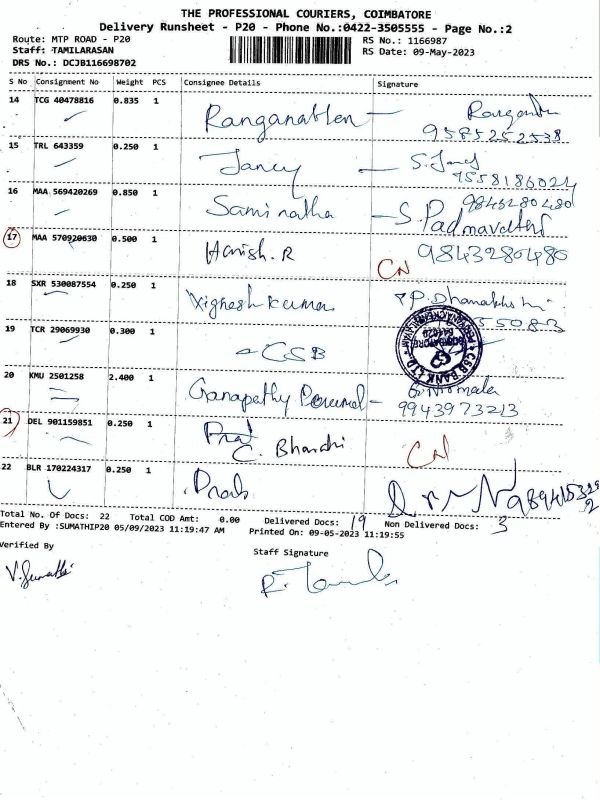 THE PROFESSIONAL COURIERS, COIMBATORE
Delivery Runsheet - P20 - Phone No.:0422-3505555 - Page No.:2
Route: MTP ROAD - P20 RS No.: 1166987
Staff: TAMILARASAN RS Date: 09-May-2023
DRS No.: DCJB116698702
S No Consignment No Weight PCS Consignee Details Signature
14 TCG 40478816 0.835 1 Ranganathen
9585252538
15 TRL 643359 0.250 1 Jancy S. Jancy
9558186024
16 MAA 569420269 0.850 1 Saminatha S. Padmavathi
9843280480
17 MAA 570920630 0.500 1 Harish.R 9843280480
CN
18 SXR 530087554 0.250 1 Vignesh kumar P. Dhanalakshmi
55083
19 TCR 29069930 0.300 1 CSB
CSB BANK LTD.
COIMBATORE
20 KMU 2501258 2.400 1 Ganapathy Perumal G. Nirmala
9943973213
21 DEL 901159851 0.250 1 C. Bharathi CN
22 BLR 170224317 0.250 1
Total No. Of Docs: 22 Total COD Amt: 0.00 Delivered Docs: 19 Non Delivered Docs: 3
Entered By :SUMATHIP20 05/09/2023 11:19:47 AM Printed On: 09-05-2023 11:19:55
Verified By Staff Signature
V. Sumathi